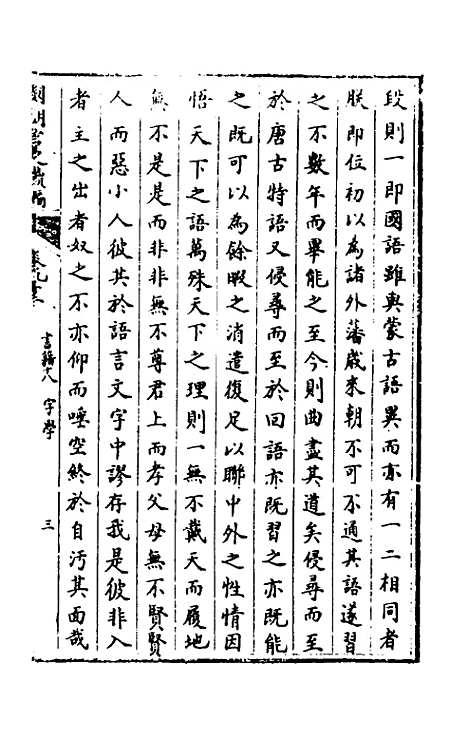 段則一即國語雖與蒙古語異而亦有一二相同者
朕即位初以為諸外藩歲來朝不可不通其語遂習
之不數年而畢能之至今則曲盡其道矣侵尋而至
於唐古特語又侵尋而至於回語亦既習之亦既能
之既可以為餘暇之消遣復足以聯中外之性情因
悟天下之語萬殊天下之理則一無不戴天而履地
無不是是而非非無不尊君上而孝父母無不賢賢
人而惡小人彼其於語言文字中謬存我是彼非入
者主之出者奴之不亦仰而唾空終於自汚其面哉
書籍十八 字學
三